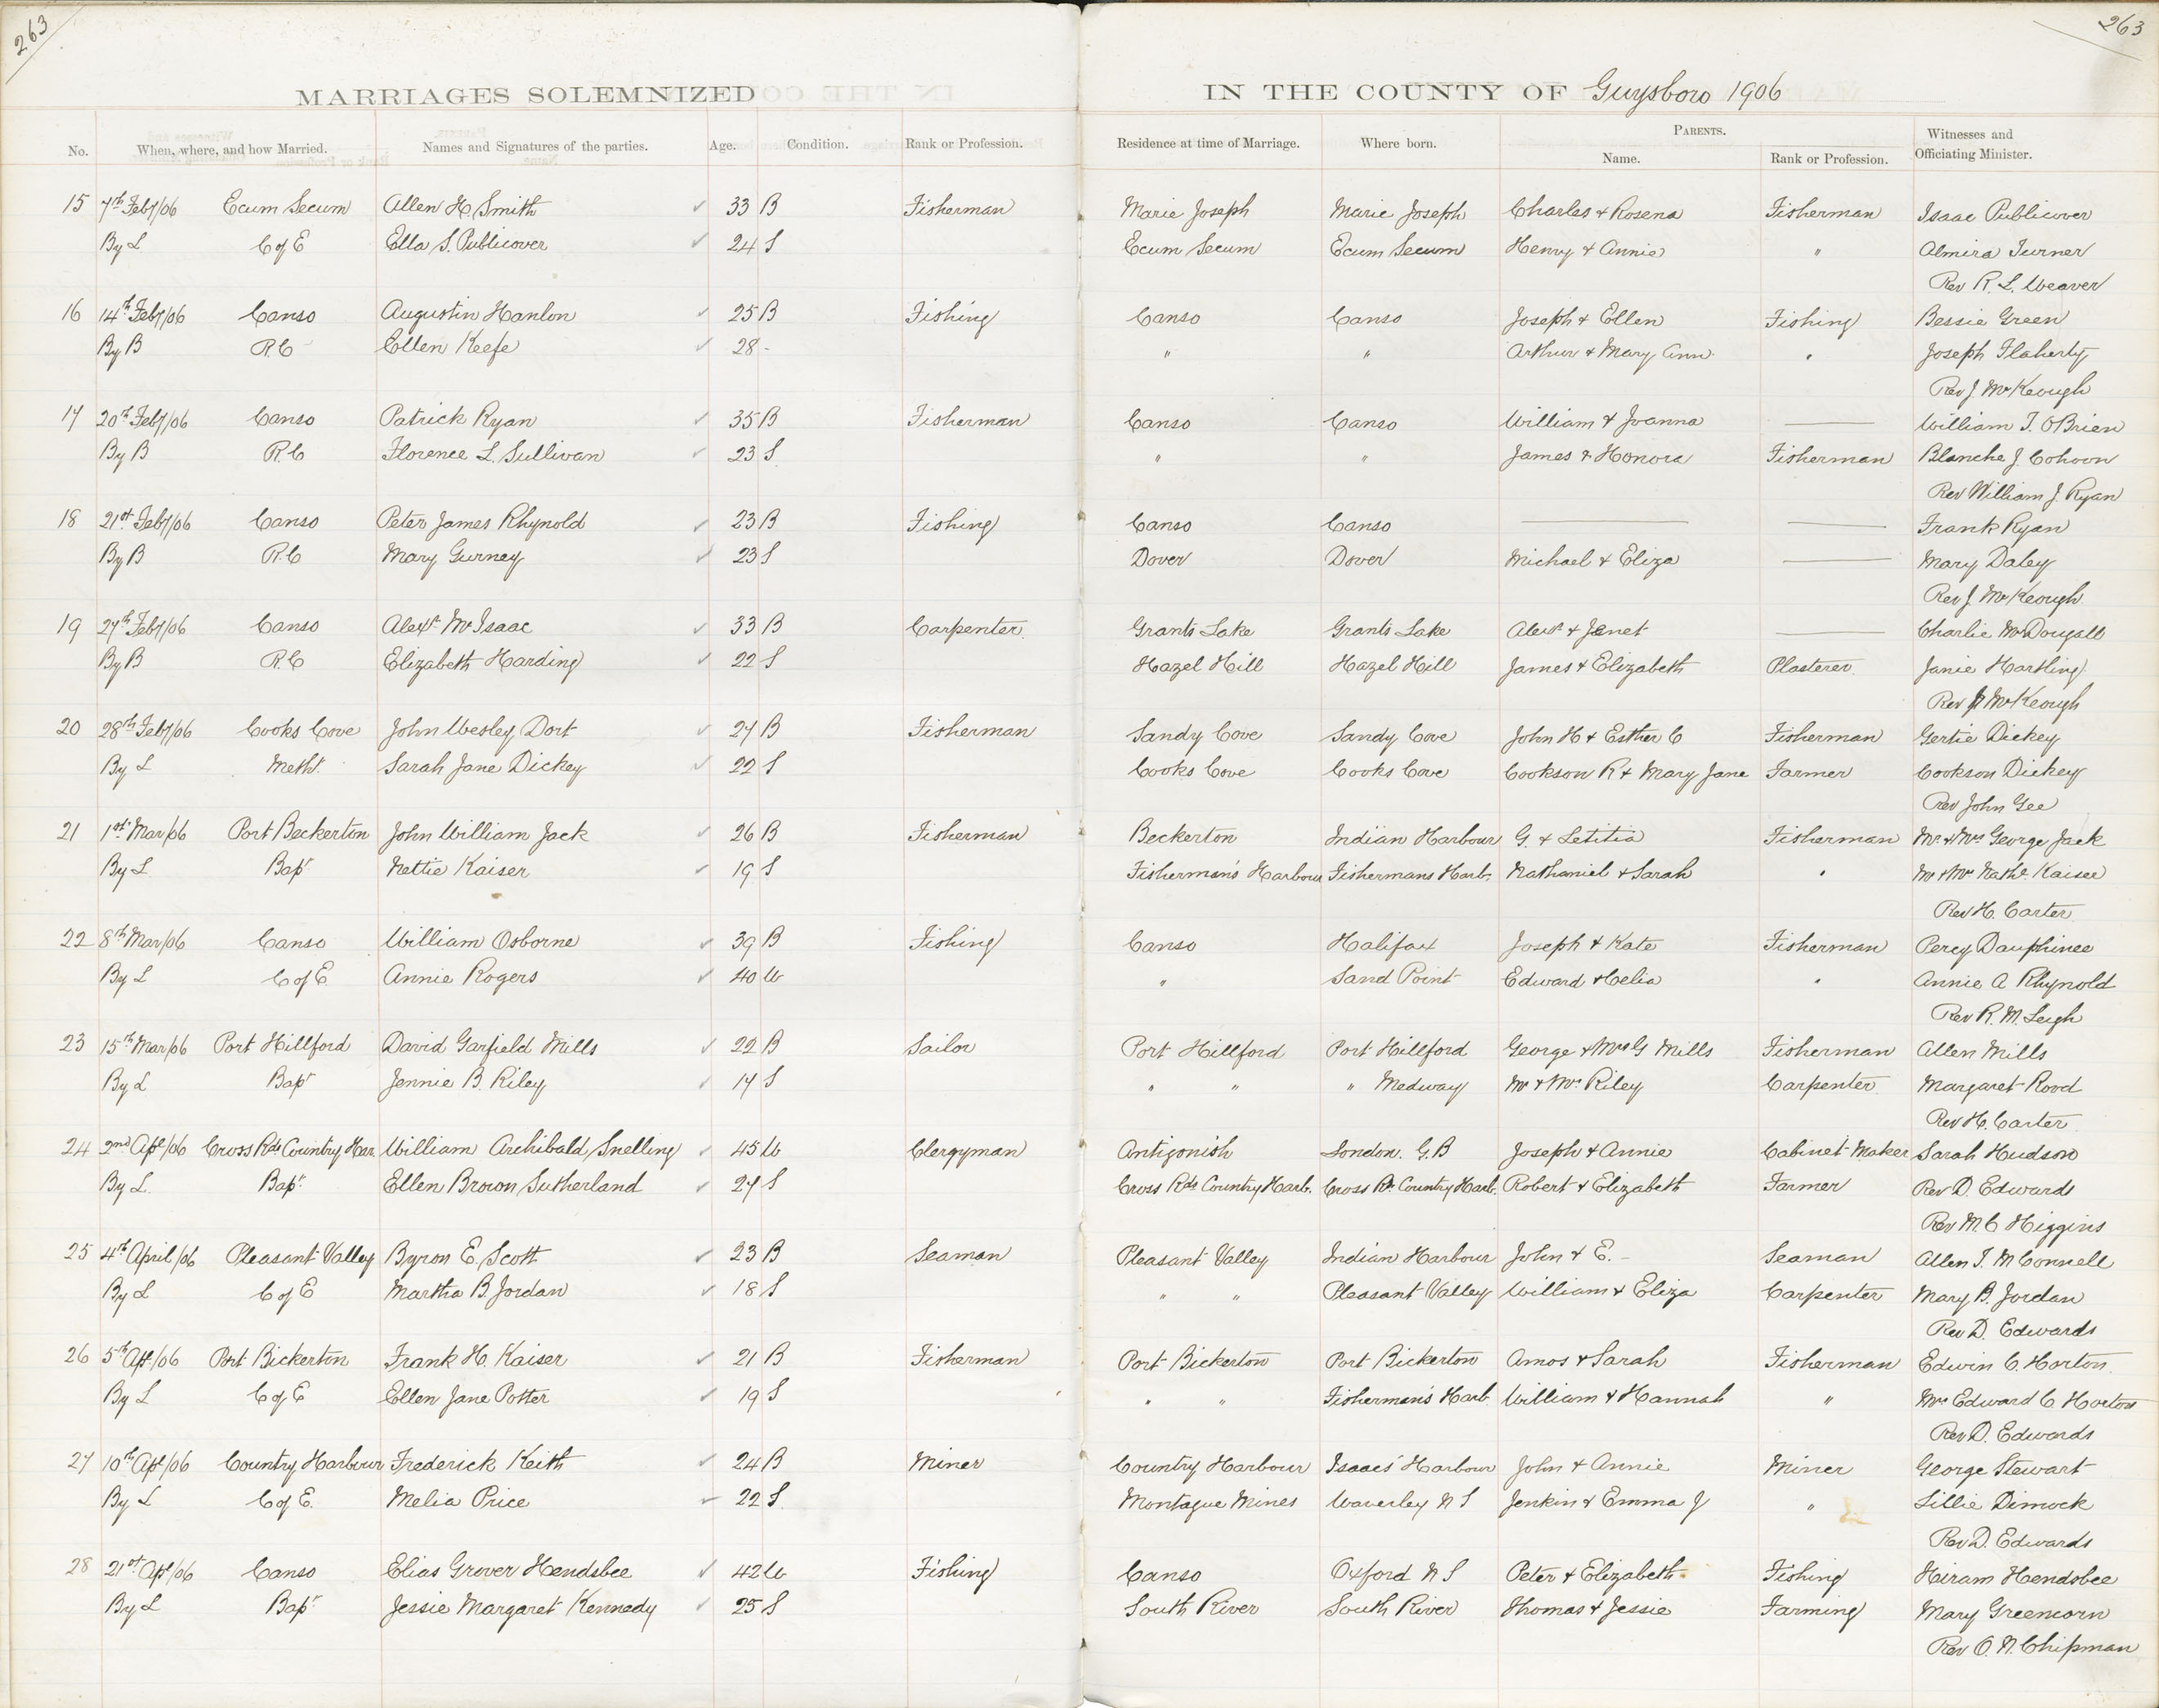 263
263
MARRIAGES SOLEMNIZED IN THE COUNTY OF Guysboro 1906
No. When, where, and how Married. Names and Signatures of the parties. Age. Condition. Rank or Profession. Residence at time of Marriage. Where born. PARENTS. Name. Rank or Profession. Witnesses and Officiating Minister.
15 7th Feby/06 Ecum Secum Allen H. Smith ✓ 33 B Fisherman Marie Joseph Marie Joseph Charles & Rosena Fisherman Isaac Publicover
By L C of E Ella S. Publicover ✓ 24 S Ecum Secum Ecum Secum Henry & Annie " Almira Turner
Rev R. L. Weaver
16 14th Feby/06 Canso Augustin Hanlon ✓ 25 B Fishing Canso Canso Joseph & Ellen Fishing Bessie Green
By B R.C Ellen Keefe ✓ 28 - " " Arthur & Mary Ann " Joseph Flaherty
Rev J McKeough
17 20th Feby/06 Canso Patrick Ryan ✓ 35 B Fisherman Canso Canso William & Joanna — William T. OBrien
By B R.C Florence L. Sullivan ✓ 23 S " " James & Honora Fisherman Blanche J. Cohoon
Rev William J. Ryan
18 21st Feby/06 Canso Peter James Rhynold ✓ 23 B Fishing Canso Canso — — Frank Ryan
By B R.C Mary Gurney ✓ 23 S Dover Dover Michael & Eliza — Mary Daley
Rev J McKeough
19 27th Feby/06 Canso Alexr McIsaac ✓ 33 B Carpenter Grants Lake Grants Lake Alexr & Janet — Charlie McDougall
By B R.C Elizabeth Harding ✓ 22 S Hazel Hill Hazel Hill James & Elizabeth Plasterer Janie Hartling
Rev J McKeough
20 28th Feby/06 Cooks Cove John Wesley Dort ✓ 27 B Fisherman Sandy Cove Sandy Cove John H & Esther C Fisherman Gertie Dickey
By L Metht. Sarah Jane Dickey ✓ 22 S Cooks Cove Cooks Cove Cookson R & Mary Jane Farmer Cookson Dickey
Rev John Gee
21 1st Mar/06 Port Beckerton John William Jack ✓ 26 B Fisherman Beckerton Indian Harbour G. & Letitia Fisherman Mr & Mrs George Jack
By L Bapt Nettie Kaiser ✓ 19 S Fisherman's Harbour Fishermans Harb. Nathaniel & Sarah " Mr & Mrs Nathl. Kaiser
Rev H. Carter
22 8th Mar/06 Canso William Osborne ✓ 39 B Fishing Canso Halifax Joseph & Kate Fisherman Percy Dauphinee
By L C of E. Annie Rogers ✓ 40 W " Sand Point Edward & Celia " Annie A Rhynold
Rev R. M. Leigh
23 15th Mar/06 Port Hillford David Garfield Mills ✓ 22 B Sailor Port Hillford Port Hillford George & Mrs G Mills Fisherman Allen Mills
By L Bapt Jennie B. Riley ✓ 17 S " " " Medway Mr & Mrs Riley Carpenter Margaret Rood
Rev H. Carter
24 2nd Apl/06 Cross Rds Country Har William Archibald Snelling ✓ 45 W Clergyman Antigonish London. G.B Joseph & Annie Cabinet Maker Sarah Hudson
By L. Bapt. Ellen Brown Sutherland ✓ 27 S Cross Rds Country Harb. Cross Rds Country Harb. Robert & Elizabeth Farmer Rev D. Edwards
Rev M. C Higgins
25 4th April/06 Pleasant Valley Byron E. Scott ✓ 23 B Seaman Pleasant Valley Indian Harbour John & E. - Seaman Allen T. McConnell
By L C of E Martha B. Jordan ✓ 18 S " " Pleasant Valley William & Eliza Carpenter Mary B. Jordan
Rev D. Edwards
26 5th Apl/06 Port Bickerton Frank H. Kaiser ✓ 21 B Fisherman Port Bickerton Port Bickerton Amos & Sarah Fisherman Edwin C. Horton
By L C of E Ellen Jane Potter ✓ 19 S " " Fisherman's Harb. William & Hannah " Mrs Edward C Horton
Rev D. Edwards
27 10th Apl/06 Country Harbour Frederick Keith ✓ 24 B Miner Country Harbour Isaacs' Harbour John & Annie Miner George Stewart
By L C of E. Melia Price ✓ 22 S. Montague Mines Waverley N S Jenkin & Emma J " Lillie Dimock
Rev D. Edwards
28 21st Apl/06 Canso Elias Grover Hendsbee ✓ 42 W Fishing Canso Oxford N S Peter & Elizabeth Fishing Hiram Hendsbee
By L Bapt Jessie Margaret Kennedy ✓ 25 S South River South River Thomas & Jessie Farming Mary Greencorn
Rev O. N. Chipman